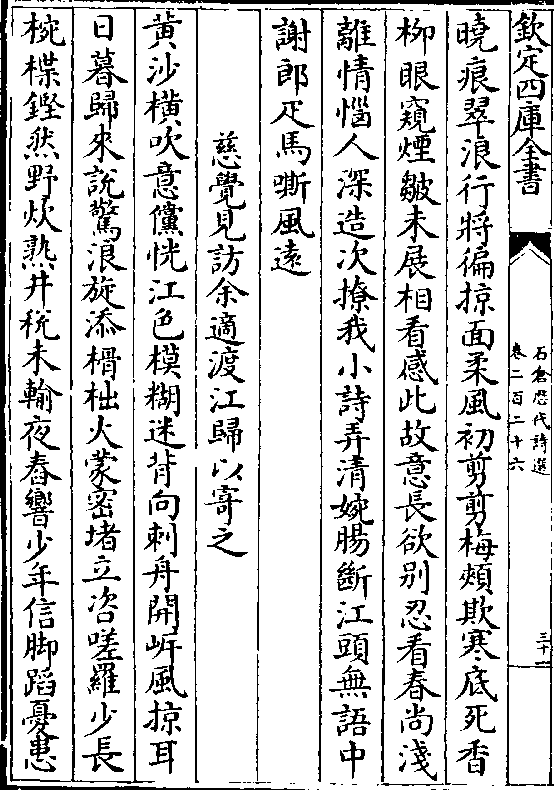 欽定四庫全書
石倉歷代詩選
卷二百二十六
三十一
曉痕翠浪行將徧掠面柔風初剪剪梅頰欺寒底死香
柳眼窺煙皺未展相看感此故意長欲别忍看春尚淺
離情惱人深造次撩我小詩弄清婉腸斷江頭無語中
謝郎疋馬嘶風遠
慈覺見訪余適渡江歸以寄之
黄沙橫吹意儻恍江色模糊迷背向刺舟開岸風掠耳
日暮歸來說驚浪旋添榾柮火蒙密堵立咨嗟羅少長
椀楪鏗然野炊熟井稅未輸夜舂響少年信脚蹈憂患